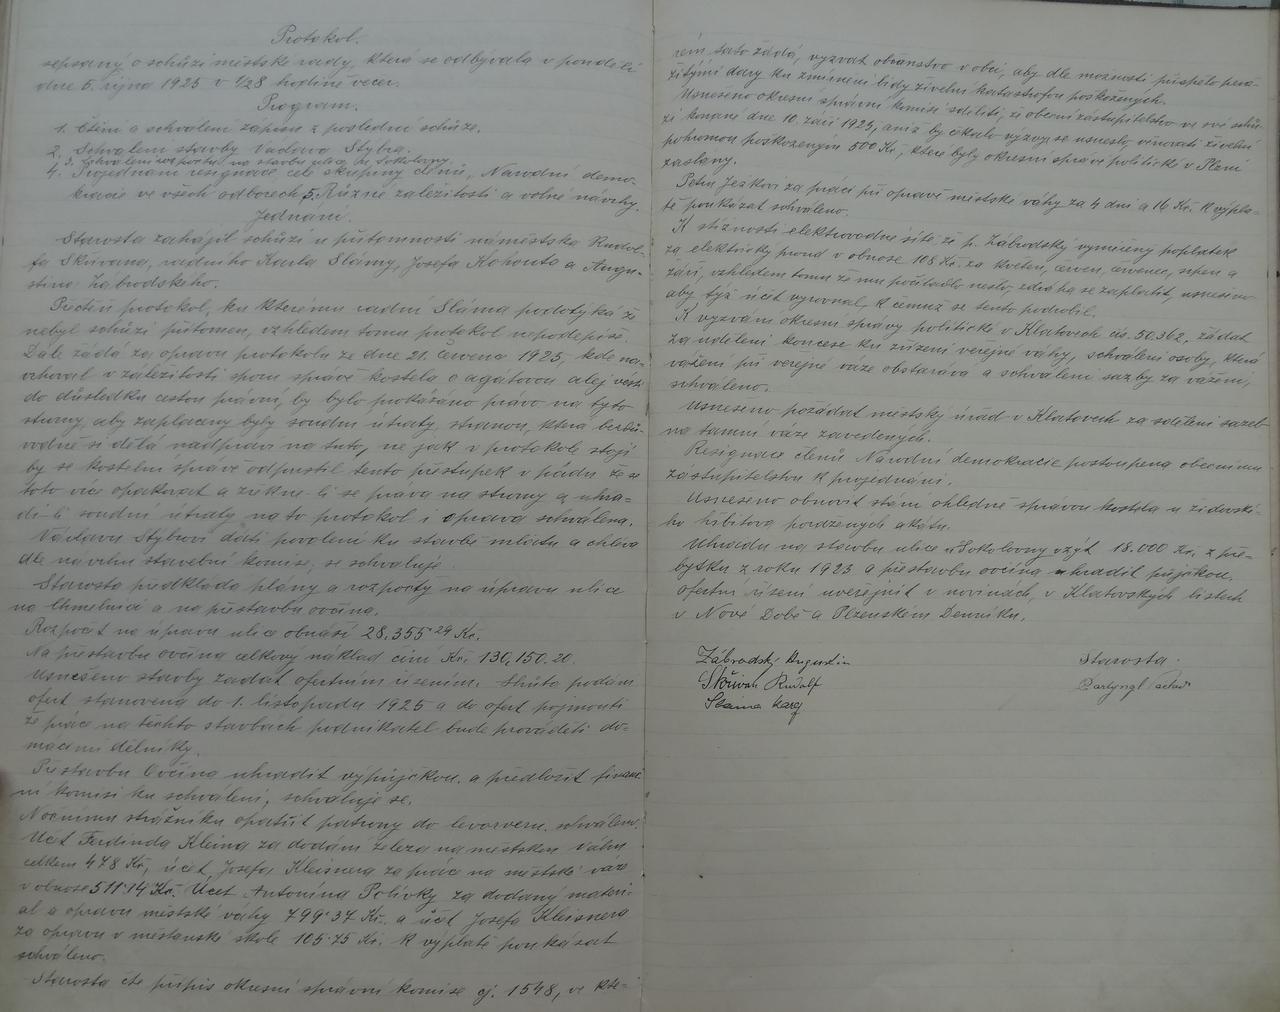 Protokol.
sepsaný o schůzi městské rady, která se odbývala v pondělí
dne 5. října 1925 v ½8 hodině večer.
Program.
1. Čtení a schválení zápisu z poslední schůze.
2. Schválení stavby Václava Stýbra.
3. Schválení rozpočtu na stavbu ulic u Sokolovny.
4. Projednání resignace celé skupiny členů „Národní demo-
kracie ve všech odborech 5. Různé záležitosti a volné návrhy.
Jednání.
Starosta zahájil schůzi u přítomnosti náměstka Rudol-
fa Skřivana, radního Karla Slámy, Josefa Kohouta a Augu-
stina Zábrodského.
Přečten protokol, ku kterému radní Sláma podotýká že
nebyl schůzi přítomen, vzhledem tomu protokol nepodepíše.
Dále žádá za opravu protokolu ze dne 21. července 1925, kde na-
vrhoval v záležitosti sporu správě kostela o agatovou alej vésti
do důsledku cestou právní, by bylo prokázáno právo na tyto
stromy, aby zaplaceny byly soudní útraty, stranou, která bezdů-
vodně si dělá nadpráví na tuto, ne jak v protokole stojí
by se kostelní správě odpustil tento přestupek v pádu že se
toto více opakovat a zřekne-li se práva na stromy a uhra-
dí li soudní útraty na to protokol i oprava schválena.
Václavu Stýbrovi dáti povolení ku stavbě mlatu a chléva
dle návrhu stavební komise, se schvaluje.
Starosta předkládá plány a rozpočty na úpravu ulice
na Chmelnici a na přestavbu ovčína.
Rozpočet na úpravu ulice obnáší 28.355·29 Kč.
Na přestavbu ovčína celkový náklad činí Kč. 130.150.20.
Usnešeno stavby zadat ofertním řízením. Lhůta podání
ofert stanovena do 1. listopadu 1925 a do ofert pojmouti
že práce na těchto stavbách podnikatel bude prováděti do-
mácími dělníky.
Přestavbu Ovčína uhradit výpůjčkou. a předložit finanč-
ní komisi ku schválení, schvaluje se.
Nočnímu strážníku opatřit patrony do levorveru. schváleno.
Účet Ferdinda Kleina za dodání železa na městskou váhu
celkem 478 Kč, účet, Josefa Kleisnera za práce na městské váze
v obnose 511·14 Kč. Účet Antonína Polívky za dodaný materi-
ál a opravu městské váhy 799·37 Kč. a účet Josefa Kleisnera
za opravu v měšťanské škole 105·75 Kč. k výplatě poukázat
schváleno.
Starosta čte přípis okresní správní komise čj. 1548, ve kte-
rém tato žádá, vyzvat občanstvo v obci, aby dle možnosti přispělo peně-
žitými dary ku zmírnění bídy živelní katastrofou poškozených.
Usneseno okresní správní komisi sděliti, že obecní zastupitelstvo ve své schů-
zi konané dne 10. září 1925, aniž by čekalo výzvy se usneslo, věnovati živelní
pohromou poškozeným 500 Kč, které byly okresní správě politické v Plzni
zaslány.
Petru Ježkovi za práci při opravě městské váhy za 4 dni a 16 Kč. k výpla-
tě poukázat schváleno.
K stížnosti elektrovodné sítě že p. Zábrodský vyměřený poplatek
za elektrický proud v obnose 108 Kč. za květen, červen, červenec, srpen a
září, vzhledem tomu že mu počitadlo nešlo, zdráhá se zaplatit, usneseno
aby týž účet vyrovnal k čemuž se tento podrobil.
K vyzvání okresní správy politické v Klatovech čís. 50.362, žádat
za udělení koncese ku zřízení veřejné váhy, schválení osoby, která
vážení při veřejné váze obstarává a schválení sazby za vážení,
schváleno.
Usnešeno požádat městský úřad v Klatovech za sdělení sazeb
na tamní váze zavedených.
Resignace členů Národní demokracie postoupena obecnímu
zastupitelstvu k projednání.
Usneseno obnovit stání ohledně správou kostela u židovské-
ho hřbitova poražených akátů.
Úhradu na stavbu ulice u Sokolovny vzít 18.000 Kč. z pře-
bytku z roku 1923 a přestavbu ovčína uhradit půjčkou.
Ofertní řízení uveřejnit v novinách, v Klatovských listech
v Nové Době a Plzenském Denníku.
Zábrodský Augustin
Skřivan Rudolf
Sláma Karel
Starosta.